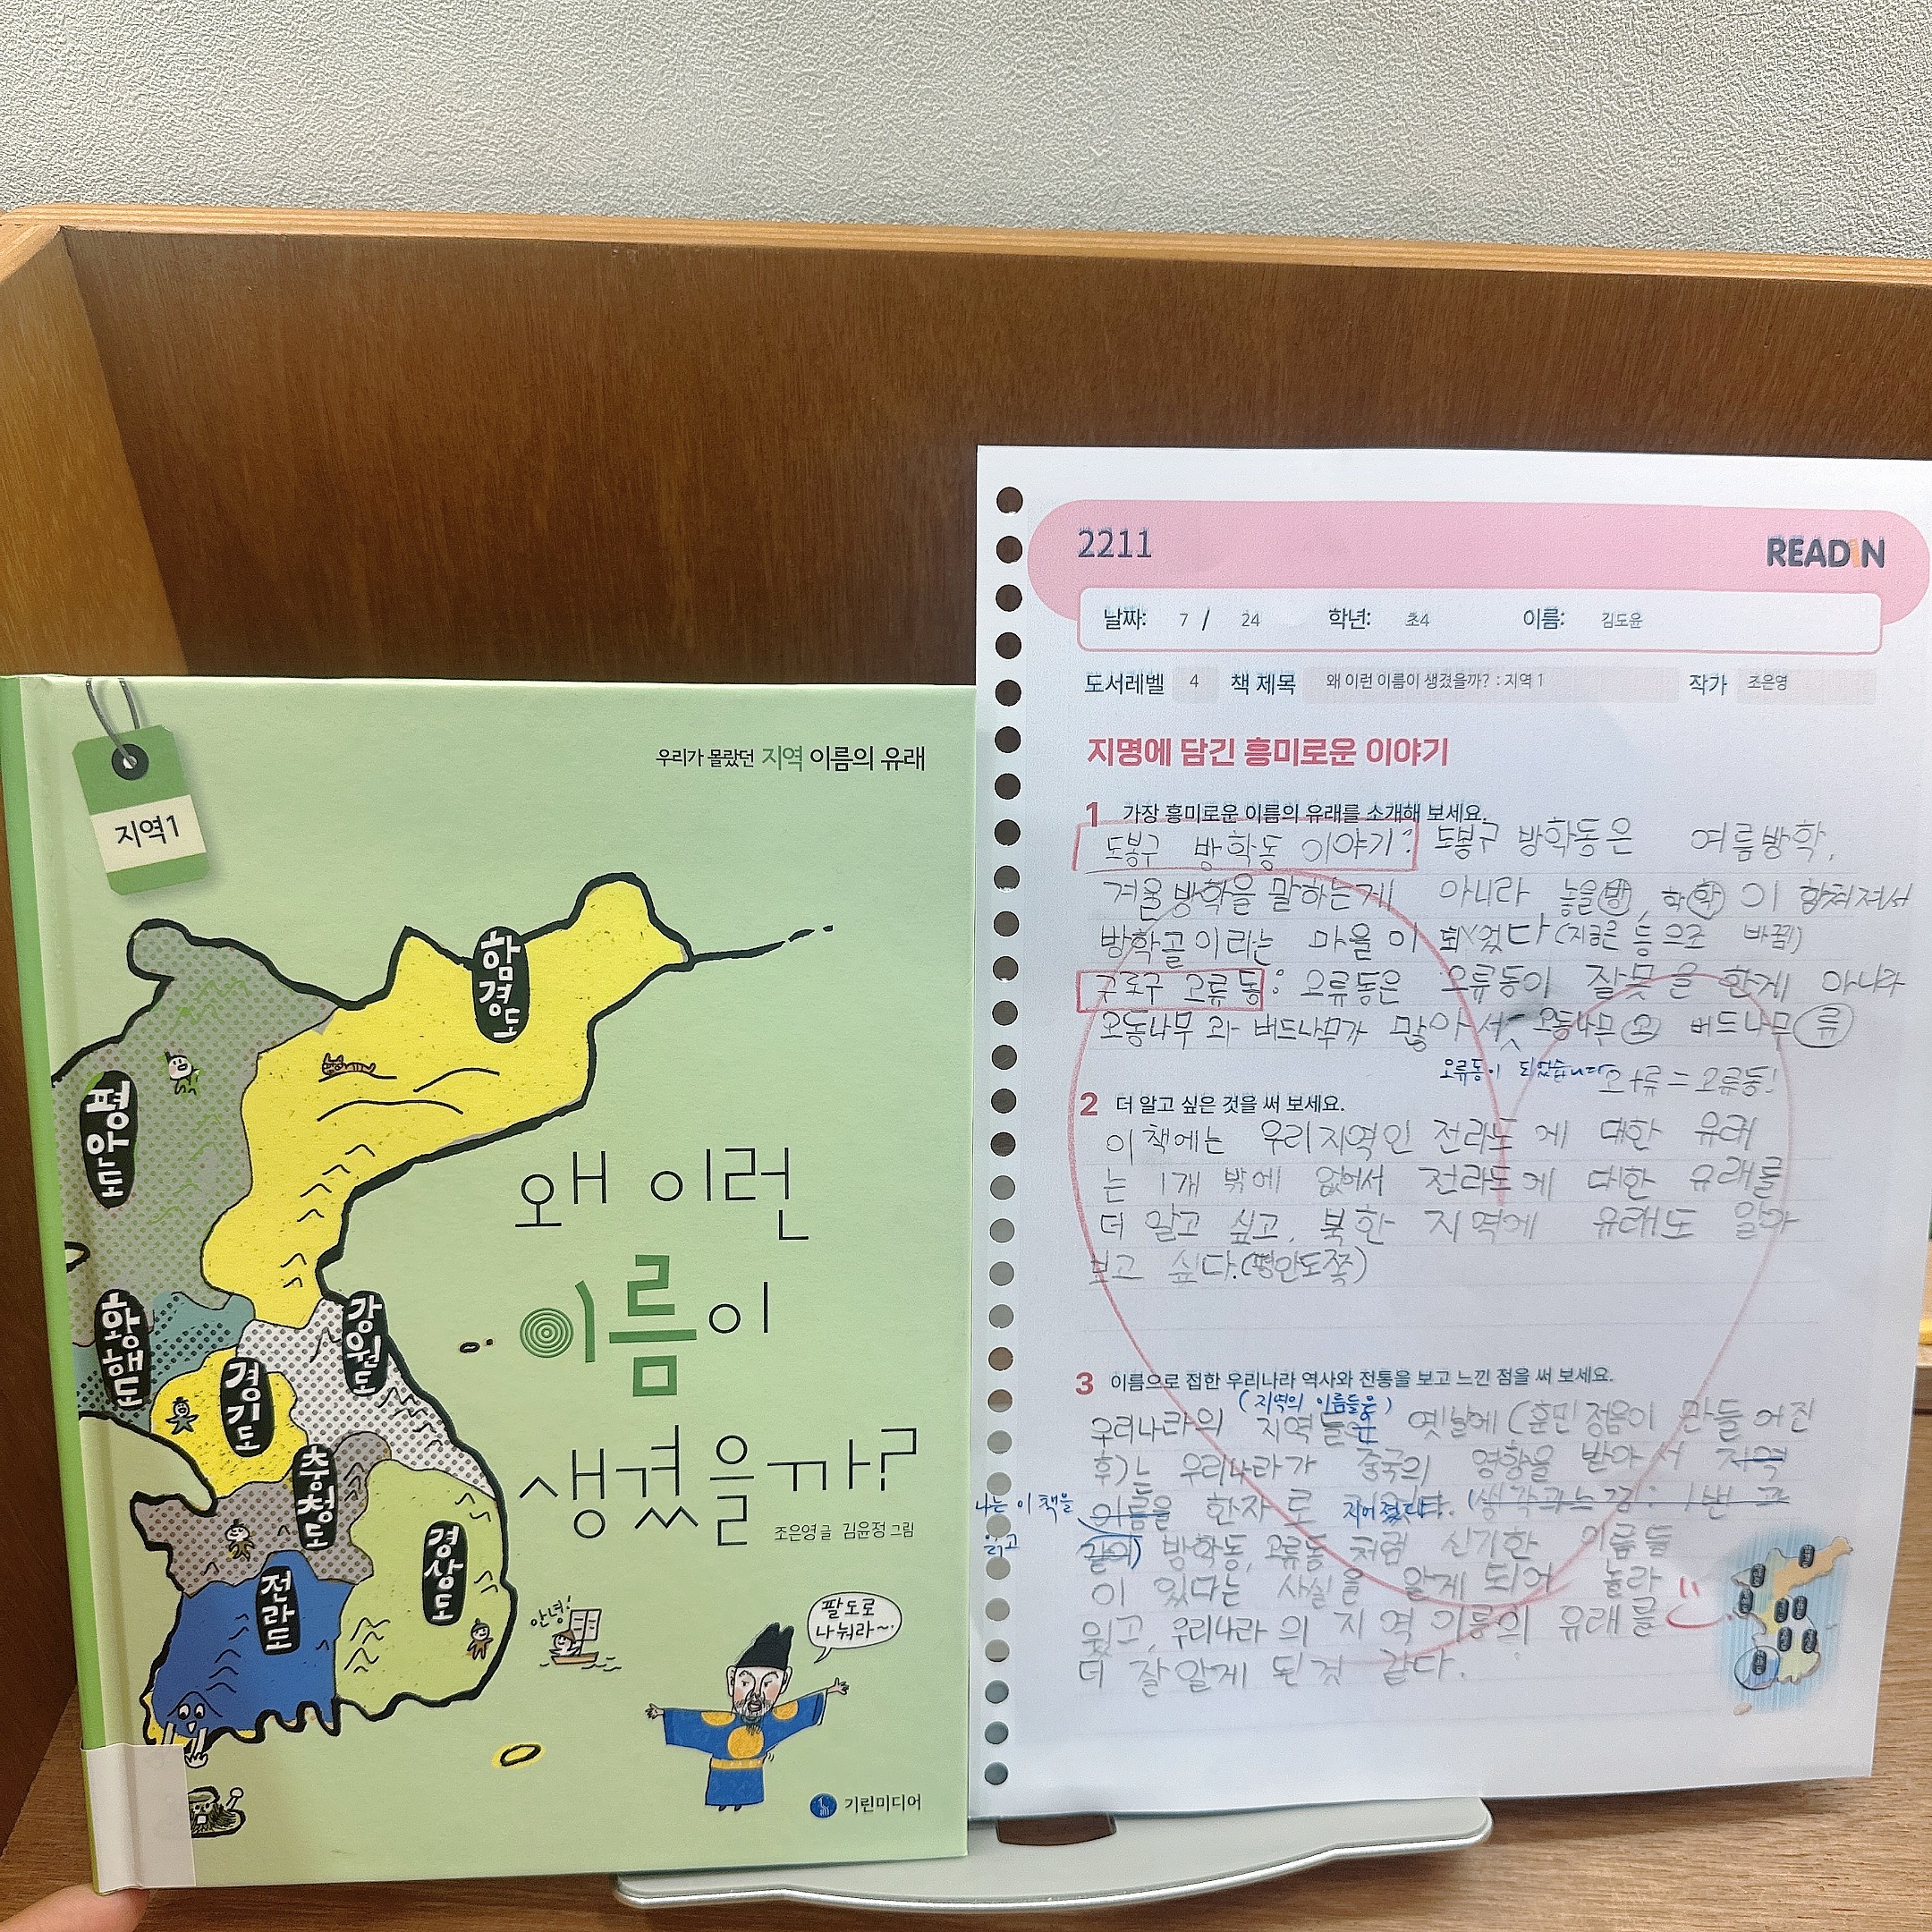 우리가 몰랐던 지역 이름의 유래
지역1
함경도
평안도
황해도
강원도
경기도
충청도
경상도
전라도
왜 이런
이름이
생겼을까?
조은영 글 김윤정 그림
안녕!
팔도로
나눠라~
기린미디어
2211
READIN
날짜: 7 / 24 학년: 초4 이름: 김도윤
도서레벨 4 책 제목 왜 이런 이름이 생겼을까? : 지역 1 작가 조은영
지명에 담긴 흥미로운 이야기
1 가장 흥미로운 이름의 유래를 소개해 보세요.
도봉구 방학동 이야기: 도봉구 방학동은 여름방학,
겨울방학을 말하는게 아니라 놓을방, 학학이 합쳐져서
방학골이라는 마을이 되었다(지금은 동으로 바뀜)
구로구 오류동: 오류동은 오류동이 잘못을 한게 아니라
오동나무와 버드나무가 많아서 오동나무오 버드나무류
오류동이 되었습니다 오+류=오류동!
2 더 알고 싶은 것을 써 보세요.
이 책에는 우리지역인 전라도에 대한 유래
는 1개 밖에 없어서 전라도에 대한 유래를
더 알고 싶고, 북한 지역에 유래도 알아
보고 싶다.(평안도쪽)
3 이름으로 접한 우리나라 역사와 전통을 보고 느낀 점을 써 보세요.
(지역의 이름들은)
우리나라의 지역들은 옛날에(훈민정음이 만들어진
후)는 우리나라가 중국의 영향을 받아서 지역
나는 이 책을 이름을 한자로 지어졌다. 1번 과
읽고 같이) 방학동, 오류동처럼 신기한 이름들
이 있다는 사실을 알게 되어 놀라
웠고, 우리나라의 지역 이름의 유래를
더 잘 알게 된 것 같다.